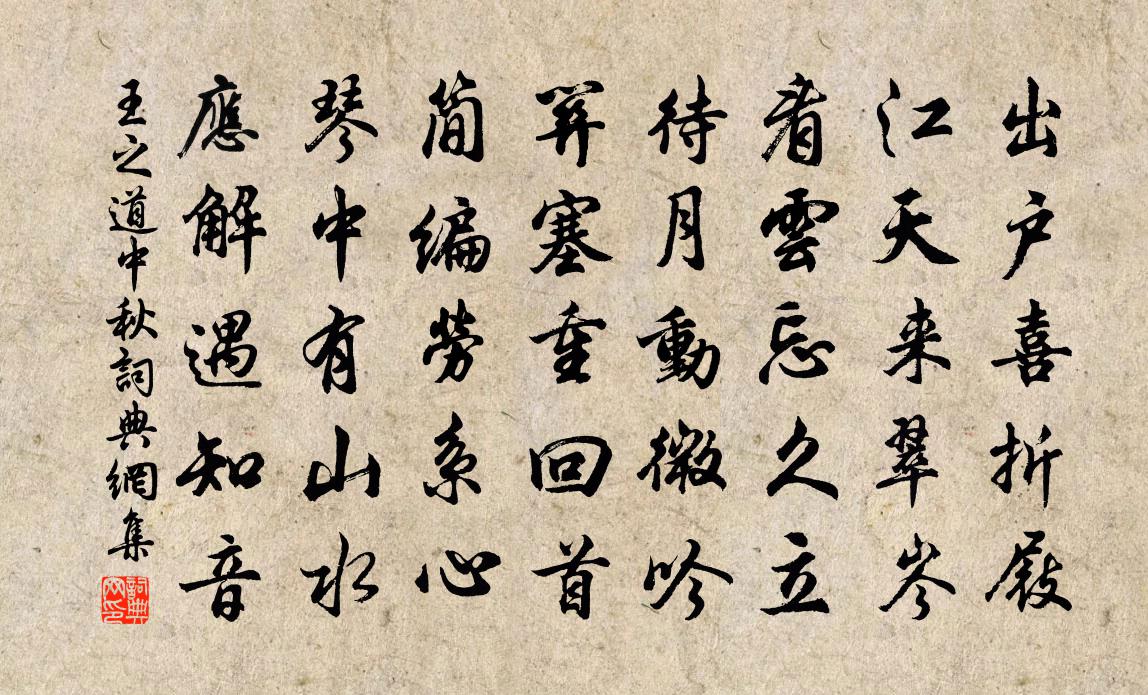 出户喜折屐
江天来翠岑
看雲忘久立
待月動微吟
塞重回首
简编勞系心
琴中有山水
應解遇知音
王之道中秋詞典網集
詞典网印